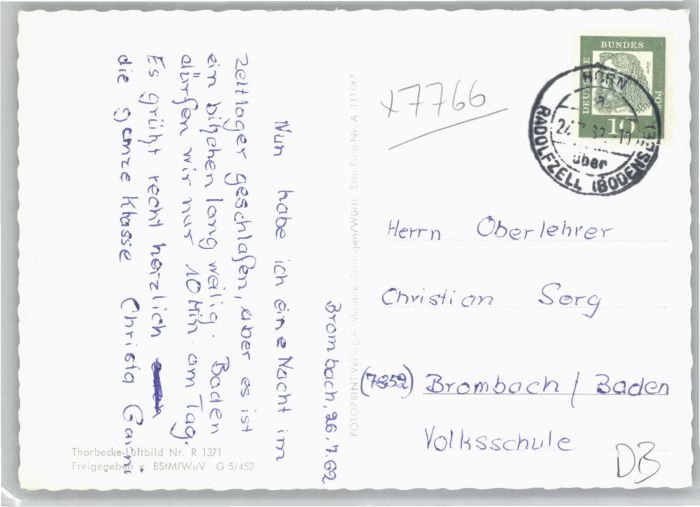 Brombach, 26.7.62
Nun habe ich eine Nacht im
Zeltlager geschlafen, aber es ist
ein bißchen langweilig. Baden
dürfen wir nur 10 Min. am Tag.
Es grüßt recht herzlich
die ganze Klasse Christa
Thorbecke-Luftbild Nr. R 1371
Freigegeben v. BStMfWuV G 5/452
FOTOPRINT Verlag A.
x7766
DEUTSCHE
BUNDES
POST
10
HORN
über
RADOLFZELL (BODENSEE)
Herrn Oberlehrer
Christian Sorg
(7852) Brombach / Baden
Volksschule
DB